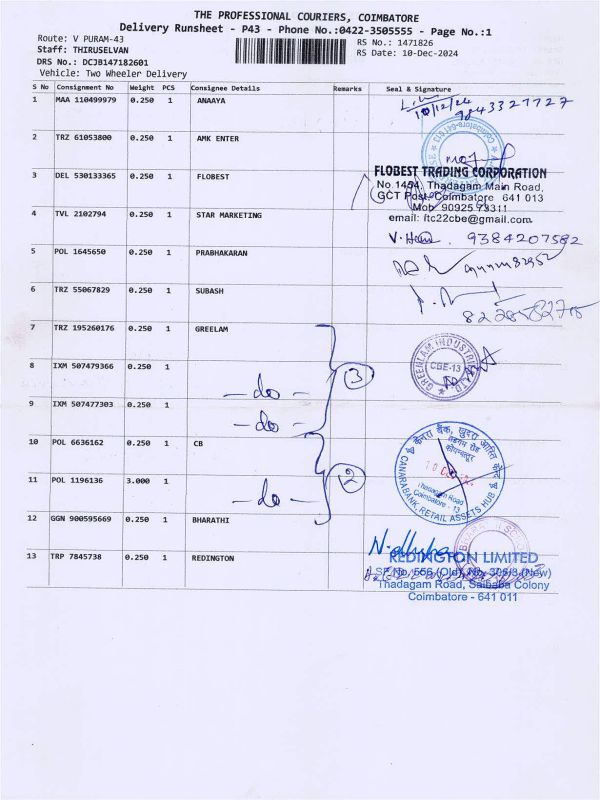 THE PROFESSIONAL COURIERS, COIMBATORE
Delivery Runsheet - P43 - Phone No.:0422-3505555 - Page No.:1
Route: V PURAM-43
RS No.: 1471826
Staff: THIRUSELVAN
RS Date: 10-Dec-2024
DRS No.: DCJB147182601
Vehicle: Two Wheeler Delivery
S No Consignment No Weight PCS Consignee Details Remarks Seal & Signature
1 MAA 110499979 0.250 1 ANAAYA
10/12/24 9843327727
2 TRZ 61053800 0.250 1 AMK ENTER
3 DEL 530133365 0.250 1 FLOBEST
FLOBEST TRADING CORPORATION
No.1494, Thadagam Main Road,
GCT Post, Coimbatore 641 013
Mob: 90925 73311
email: ftc22cbe@gmail.com
4 TVL 2102794 0.250 1 STAR MARKETING
9384207582
5 POL 1645650 0.250 1 PRABHAKARAN
6 TRZ 55067829 0.250 1 SUBASH
7 TRZ 195260176 0.250 1 GREELAM
GREENLAM INDUSTRIES
CBE-13
8 IXM 507479366 0.250 1
- do -
3
9 IXM 507477303 0.250 1
- do -
10 POL 6636162 0.250 1 CB
केनरा बैंक, खुदरा आस्ति केंद्र
तडागम रोड
कोयम्बत्तूर
Thadagam Road
Coimbatore - 13
CANARA BANK, RETAIL ASSETS HUB
11 POL 1196136 3.000 1
- do -
2
12 GGN 900595669 0.250 1 BHARATHI
13 TRP 7845738 0.250 1 REDINGTON
REDINGTON LIMITED
SF No. 556 (Old), No. 306/3 (New)
Thadagam Road, Saibaba Colony
Coimbatore - 641 011